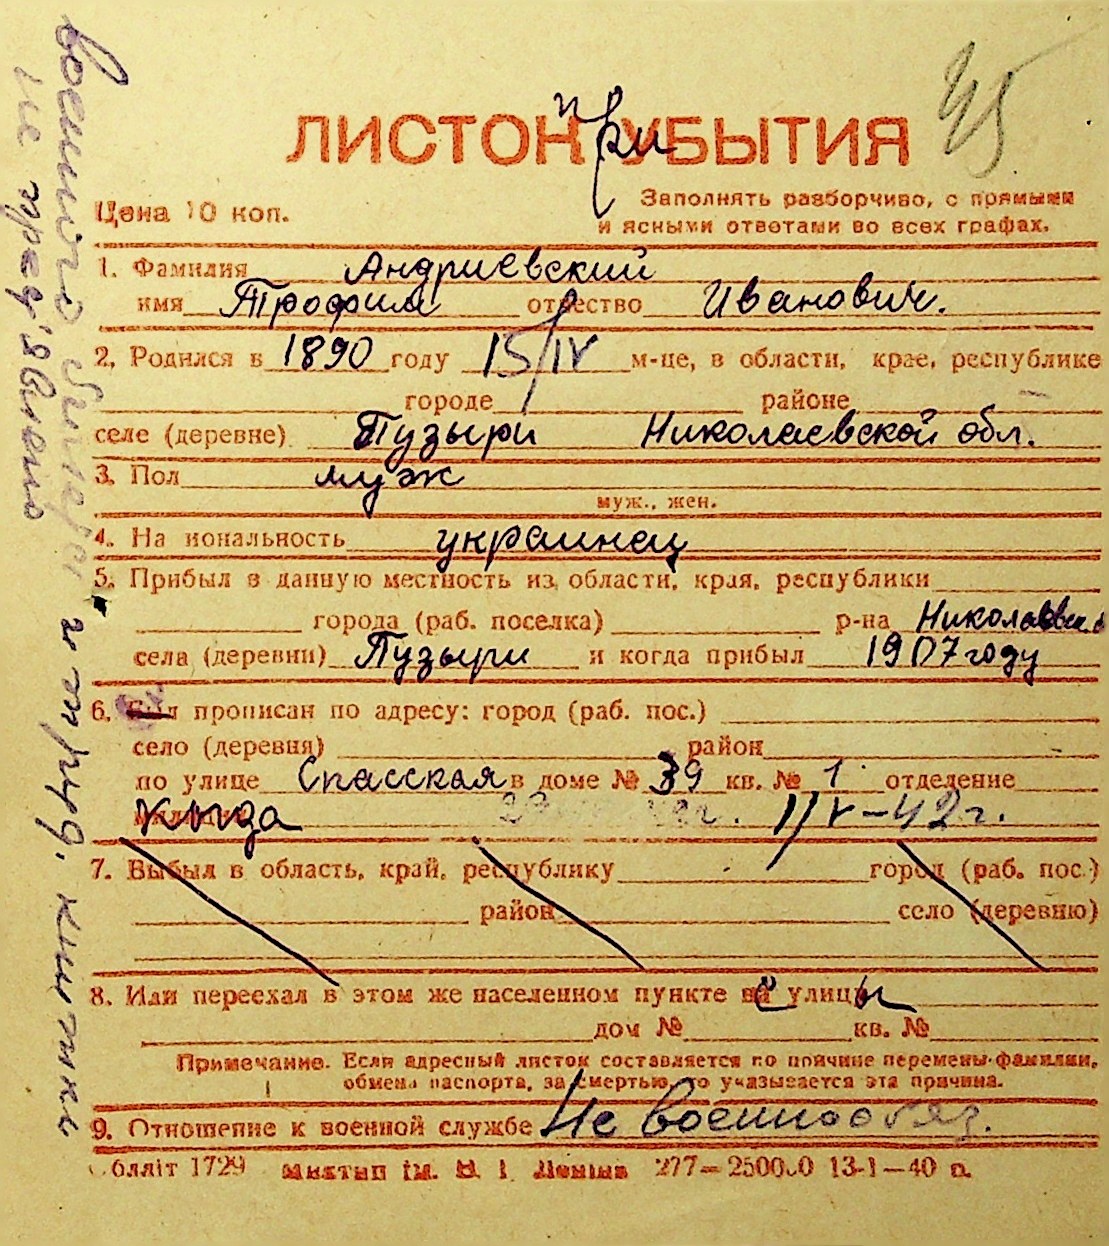 45
ЛИСТОК при УБЫТИЯ
Цена 10 коп.
Заполнять разборчиво, с прямыми
и ясными ответами во всех графах.
1. Фамилия Андриевский
имя Трофим отчество Иванович.
2. Родился в 1890 году 15/IV м-це, в области, крае, республике
городе районе
селе (деревне) Пузыри Николаевской обл.
3. Пол муж
муж., жен.
4. На иональность украинец
5. Прибыл в данную местность из области, края, республики
города (раб. поселка) р-на Николаевск.
села (деревни) Пузыри и когда прибыл 1907 году
6. прописан по адресу: город (раб. пос.)
село (деревня) район
по улице Спасская в доме № 39 кв. № 1 отделение
1/V-42 г.
7. Выбыл в область, край, республику город (раб. пос.)
район село (деревню)
8. Или переехал в этом же населенном пункте с улицы
дом № кв. №
Примечание. Если адресный листок составляется по причине перемены фамилии,
обмена паспорта, за смертью, то указывается эта причина.
9. Отношение к военной службе Не военнообяз.
бляіт 1729 Миктип ім. В. І. Леніна 277—250000 13-1—40 р.
военного билета и труд. книжки
не пред'явлено